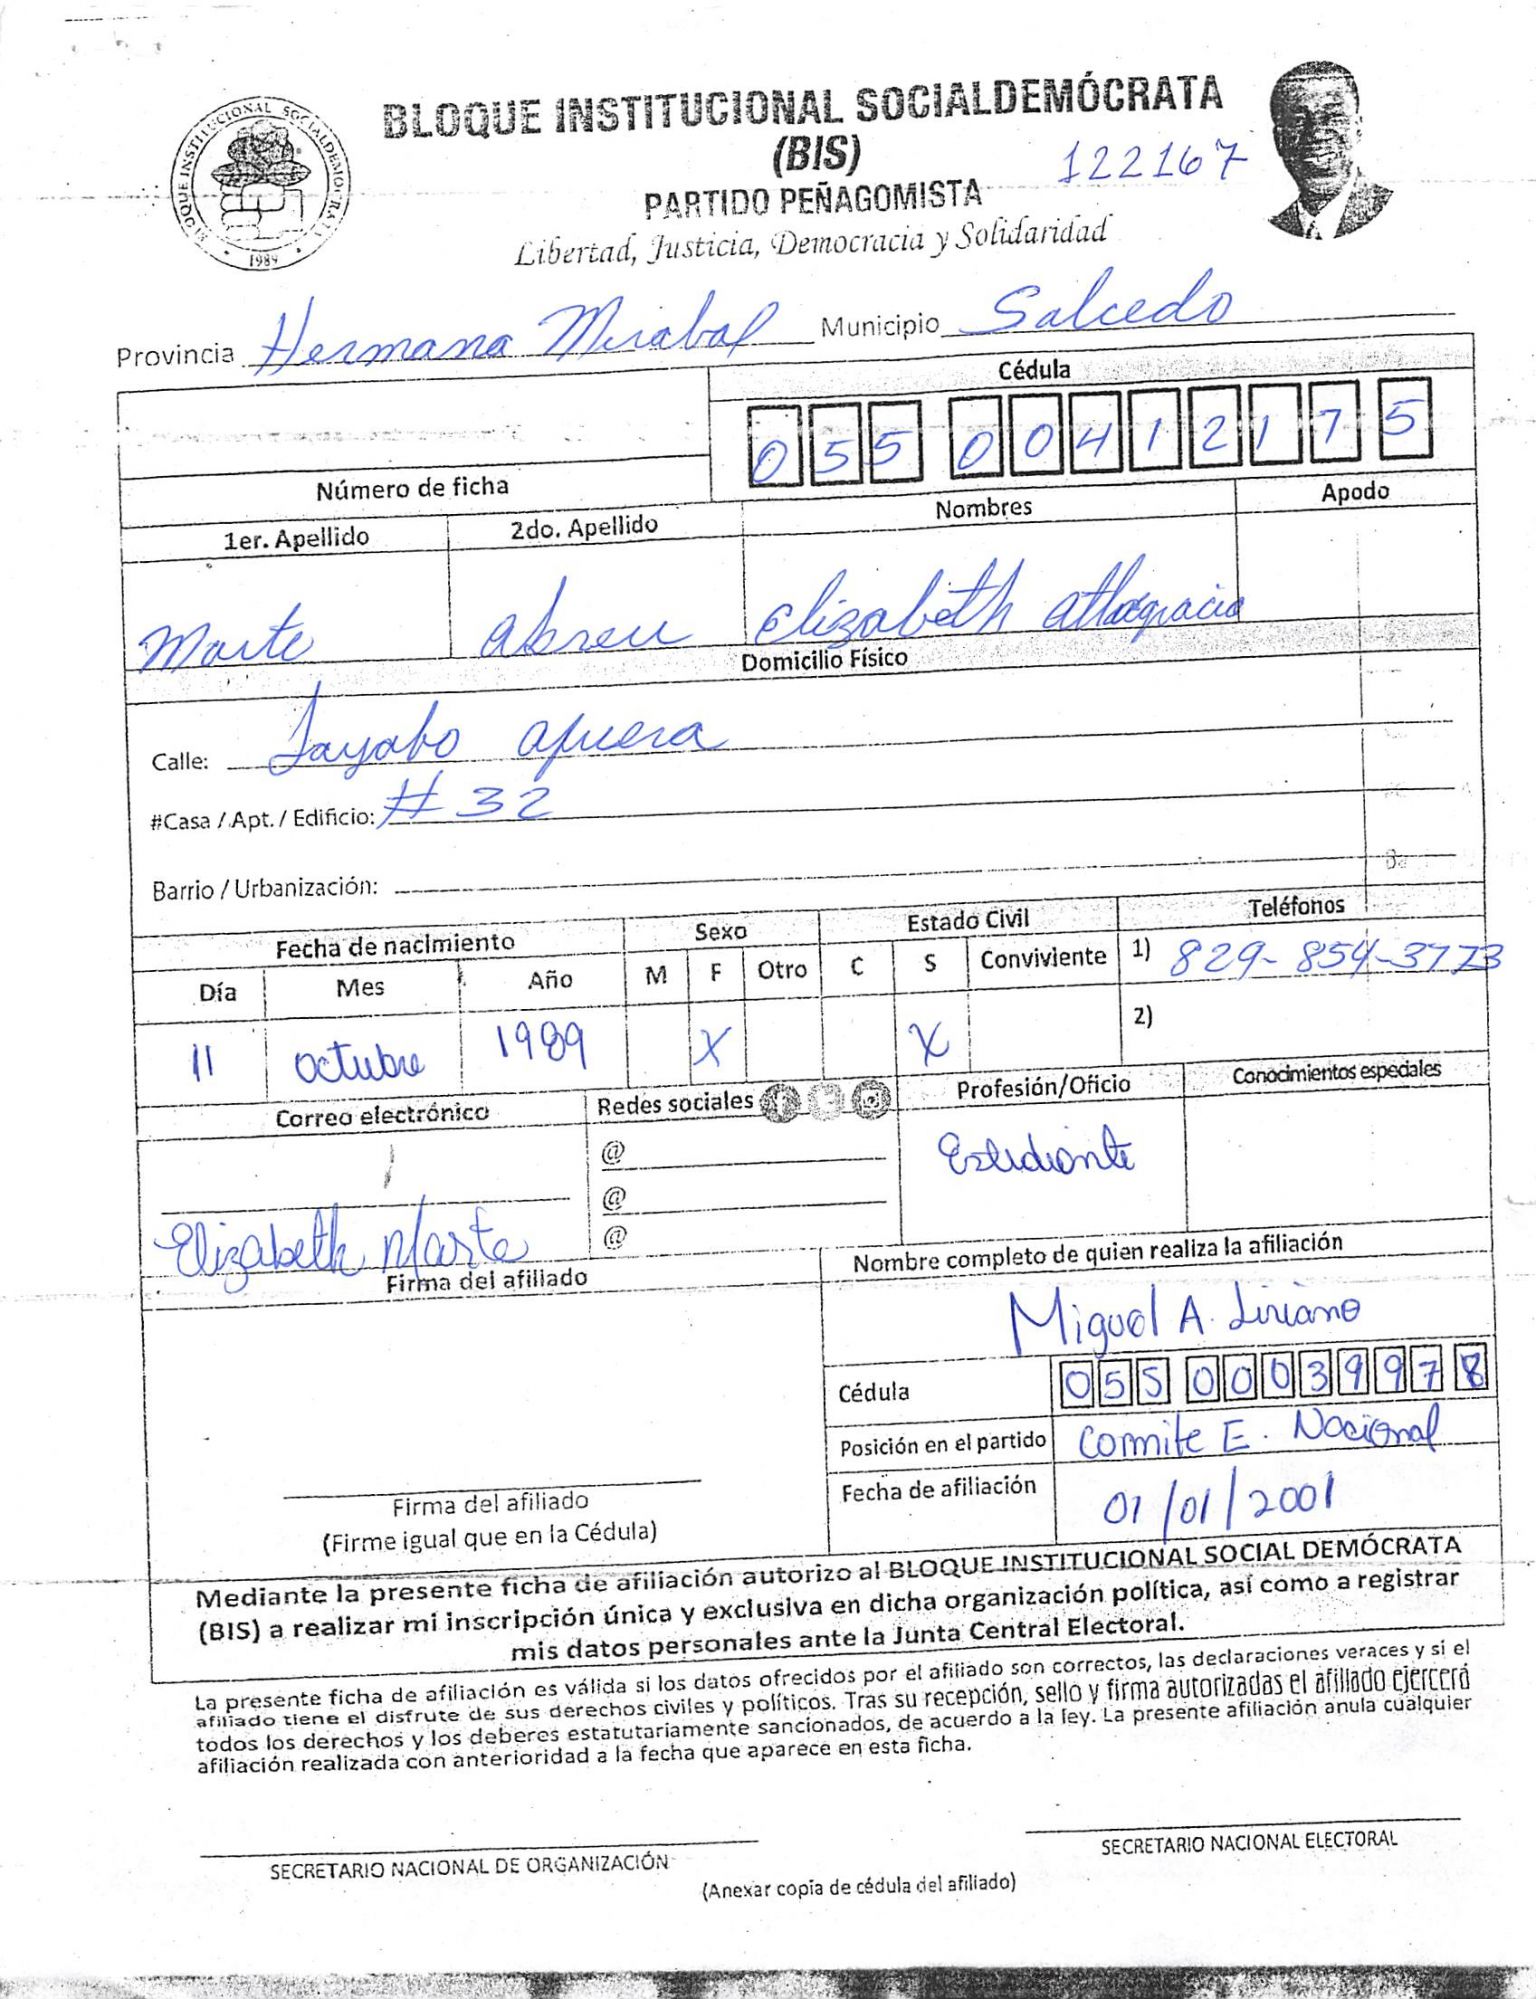 BLOQUE INSTITUCIONAL SOCIALDEMÓCRATA
(BIS)
122167
PARTIDO PEÑAGOMISTA
Libertad, Justicia, Democracia y Solidaridad
BLOQUE INSTITUCIONAL SOCIALDEMOCRATA
1989
Provincia Hermana Mirabal Municipio Salcedo
Cédula
055 0041217 5
Número de ficha
1er. Apellido 2do. Apellido Nombres Apodo
Marte Abreu Elizabeth Altagracia
Domicilio Físico
Calle: Jayabo afuera
#Casa / Apt. / Edificio: # 32
Barrio / Urbanización:
Fecha de nacimiento Sexo Estado Civil Teléfonos
Día Mes Año M F Otro C S Conviviente 1) 829-854-3773
11 octubre 1989 X X 2)
Correo electrónico Redes sociales Profesión/Oficio Conocimientos especiales
@ Estudiante
@
@
Elizabeth Marte
Firma del afiliado
Nombre completo de quien realiza la afiliación
Miguel A. Liriano
Cédula 055 0003997 8
Posición en el partido Comite E. Nacional
Fecha de afiliación 01/01/2001
Firma del afiliado
(Firme igual que en la Cédula)
Mediante la presente ficha de afiliación autorizo al BLOQUE INSTITUCIONAL SOCIAL DEMÓCRATA
(BIS) a realizar mi inscripción única y exclusiva en dicha organización política, así como a registrar
mis datos personales ante la Junta Central Electoral.
La presente ficha de afiliación es válida si los datos ofrecidos por el afiliado son correctos, las declaraciones veraces y si el
afiliado tiene el disfrute de sus derechos civiles y políticos. Tras su recepción, sello y firma autorizadas el afiliado ejercerá
todos los derechos y los deberes estatutariamente sancionados, de acuerdo a la ley. La presente afiliación anula cualquier
afiliación realizada con anterioridad a la fecha que aparece en esta ficha.
SECRETARIO NACIONAL DE ORGANIZACIÓN
SECRETARIO NACIONAL ELECTORAL
(Anexar copia de cédula del afiliado)